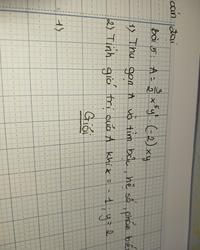 Bài 5: A = 3/2 x⁵y² · (-2)xy
1) Thu gọn A và tìm bậc, hệ số, phần biến
2) Tính giá trị của A khi x = -1; y = 2
Giải
1)